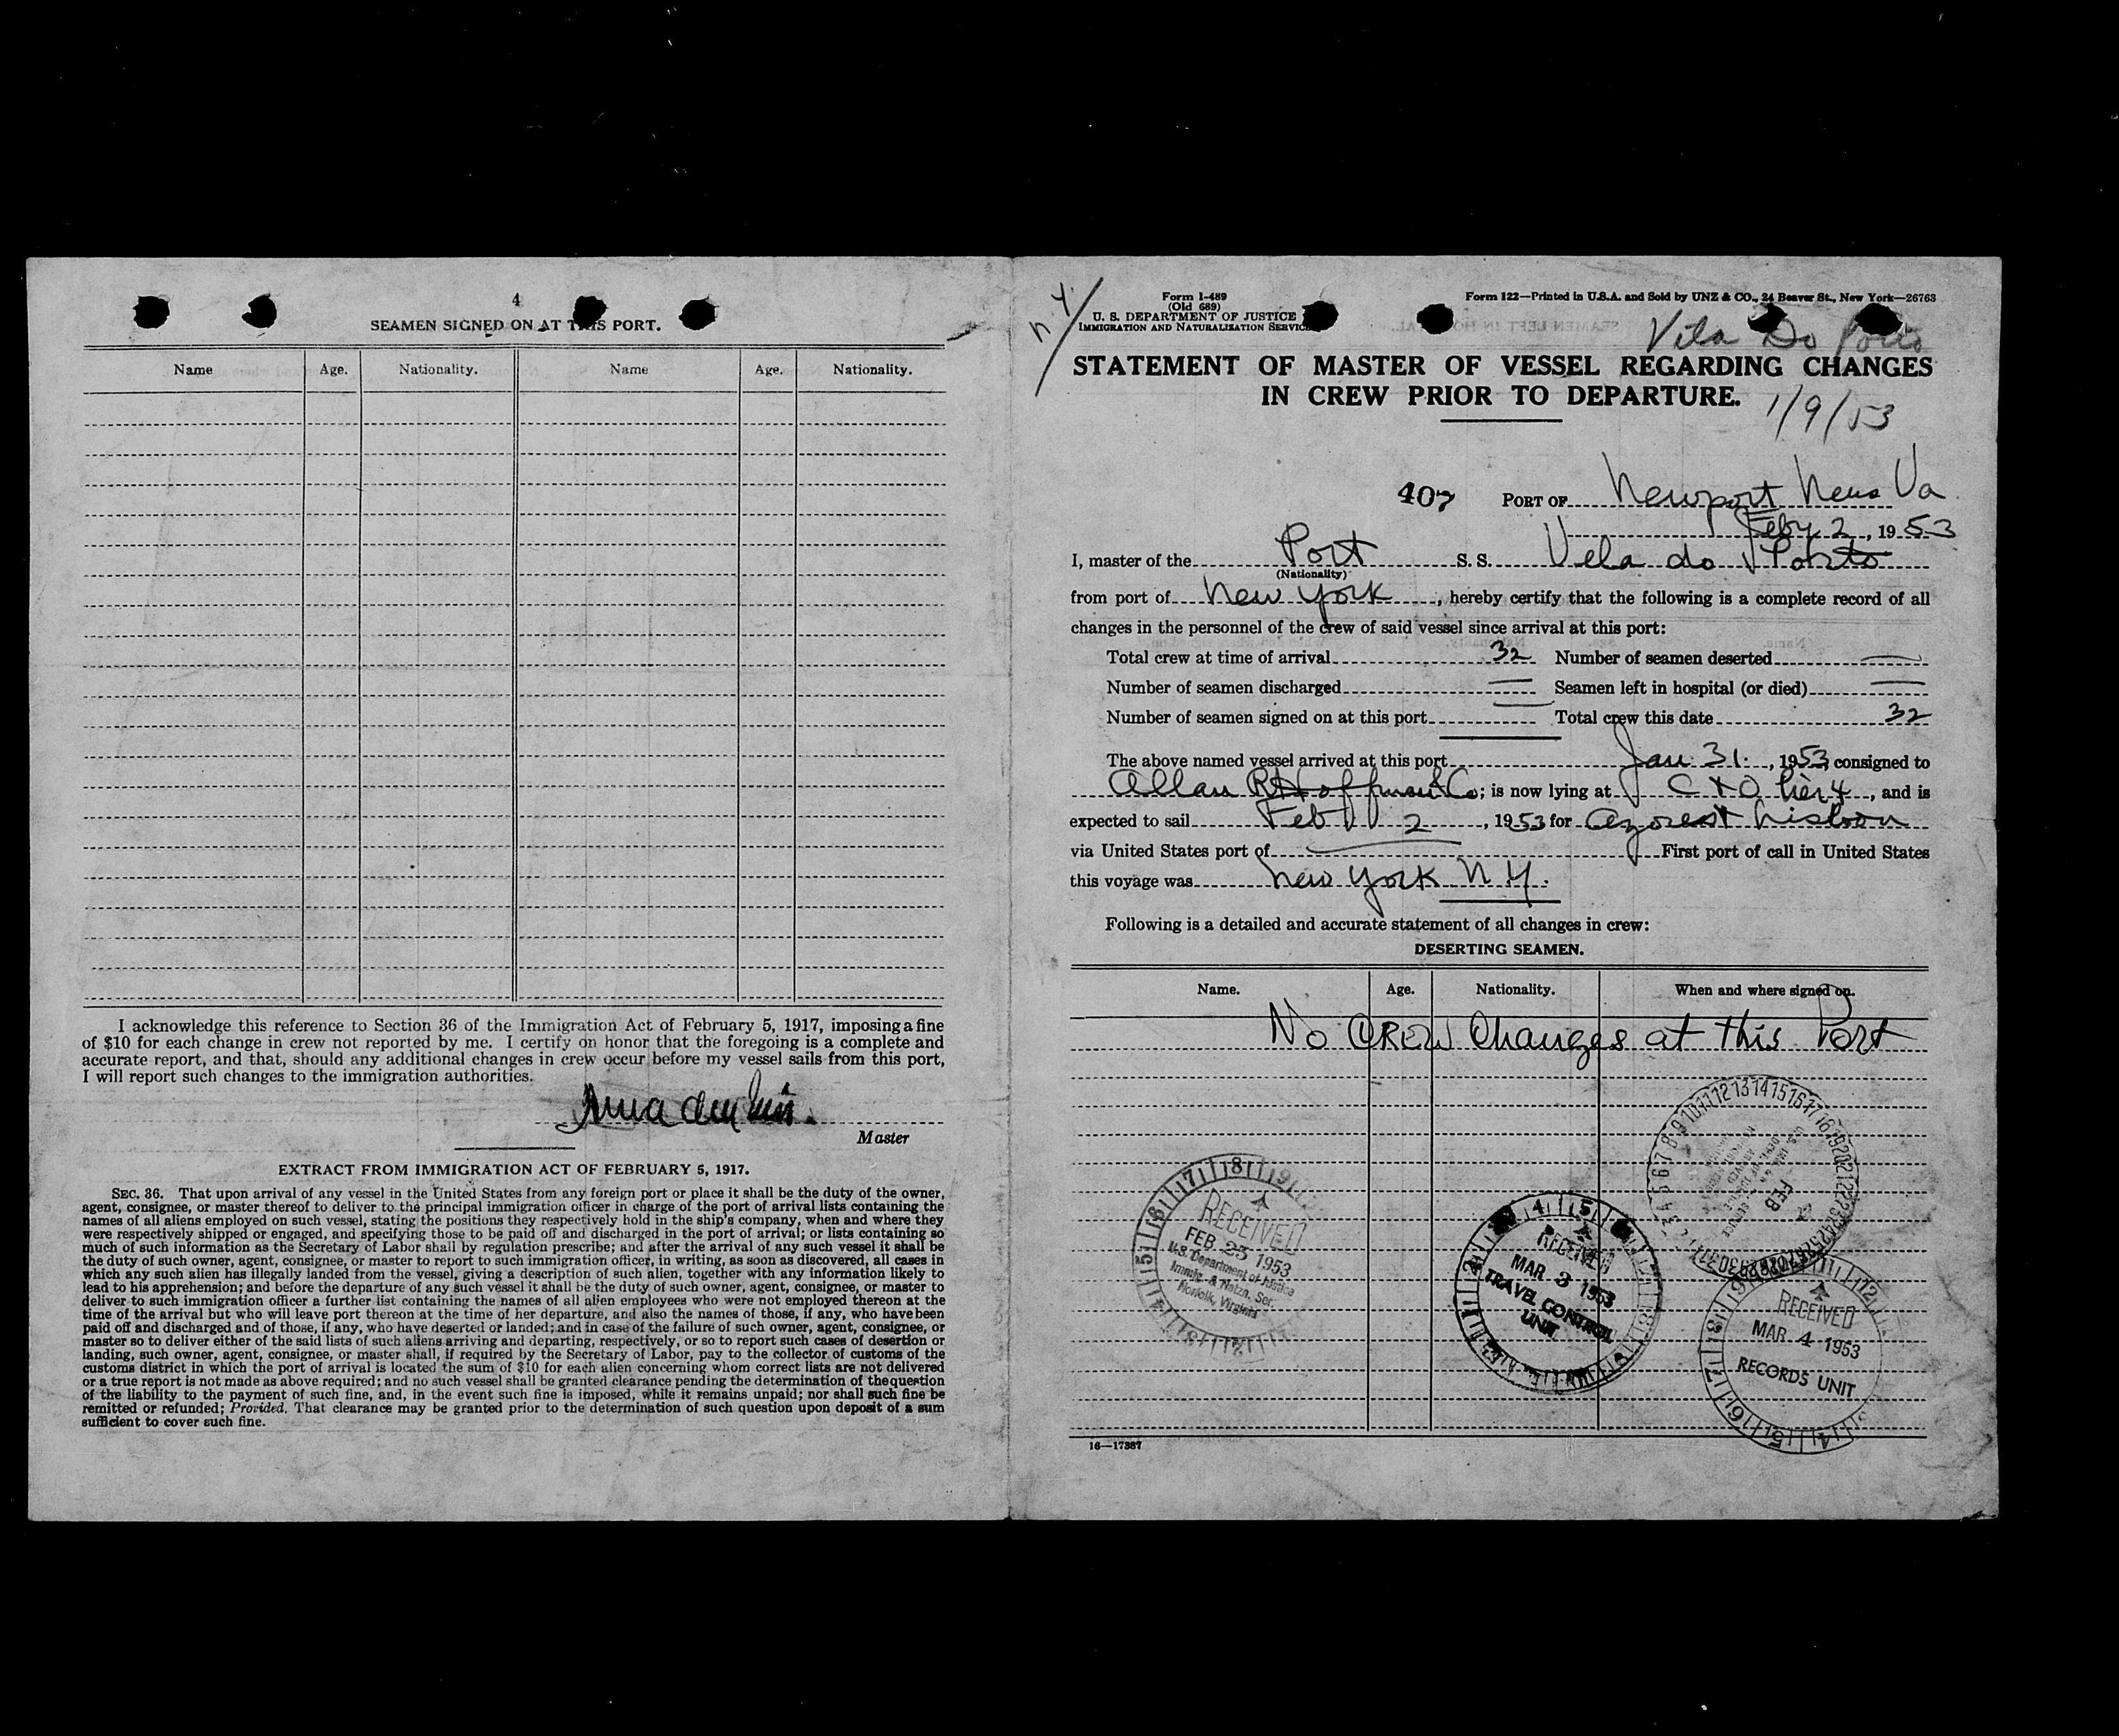 4
SEAMEN SIGNED ON AT THIS PORT.
Name Age. Nationality. Name Age. Nationality.
I acknowledge this reference to Section 36 of the Immigration Act of February 5, 1917, imposing a fine
of $10 for each change in crew not reported by me. I certify on honor that the foregoing is a complete and
accurate report, and that, should any additional changes in crew occur before my vessel sails from this port,
I will report such changes to the immigration authorities.
Master
EXTRACT FROM IMMIGRATION ACT OF FEBRUARY 5, 1917.
SEC. 36. That upon arrival of any vessel in the United States from any foreign port or place it shall be the duty of the owner,
agent, consignee, or master thereof to deliver to the principal immigration officer in charge of the port of arrival lists containing the
names of all aliens employed on such vessel, stating the positions they respectively hold in the ship's company, when and where they
were respectively shipped or engaged, and specifying those to be paid off and discharged in the port of arrival; or lists containing so
much of such information as the Secretary of Labor shall by regulation prescribe; and after the arrival of any such vessel it shall be
the duty of such owner, agent, consignee, or master to report to such immigration officer, in writing, as soon as discovered, all cases in
which any such alien has illegally landed from the vessel, giving a description of such alien, together with any information likely to
lead to his apprehension; and before the departure of any such vessel it shall be the duty of such owner, agent, consignee, or master to
deliver to such immigration officer a further list containing the names of all alien employees who were not employed thereon at the
time of the arrival but who will leave port thereon at the time of her departure, and also the names of those, if any, who have been
paid off and discharged and of those, if any, who have deserted or landed; and in case of the failure of such owner, agent, consignee, or
master so to deliver either of the said lists of such aliens arriving and departing, respectively, or so to report such cases of desertion or
landing, such owner, agent, consignee, or master shall, if required by the Secretary of Labor, pay to the collector of customs of the
customs district in which the port of arrival is located the sum of $10 for each alien concerning whom correct lists are not delivered
or a true report is not made as above required; and no such vessel shall be granted clearance pending the determination of the question
of the liability to the payment of such fine, and, in the event such fine is imposed, while it remains unpaid; nor shall such fine be
remitted or refunded; Provided, That clearance may be granted prior to the determination of such question upon deposit of a sum
sufficient to cover such fine.
N.Y.
Form I-489
(Old 689)
U. S. DEPARTMENT OF JUSTICE
IMMIGRATION AND NATURALIZATION SERVICE
Form 122—Printed in U.S.A. and Sold by UNZ & CO., 24 Beaver St., New York—26763
Vila Do Porto
STATEMENT OF MASTER OF VESSEL REGARDING CHANGES
IN CREW PRIOR TO DEPARTURE.
1/9/53
407 PORT OF Newport News Va
Feby 2, 1953
I, master of the Port S. S. Vela do Porto
(Nationality)
from port of New York, hereby certify that the following is a complete record of all
changes in the personnel of the crew of said vessel since arrival at this port:
Total crew at time of arrival 32 Number of seamen deserted —
Number of seamen discharged — Seamen left in hospital (or died) —
Number of seamen signed on at this port — Total crew this date 32
The above named vessel arrived at this port Jan 31, 1953, consigned to
Allan R Hoffman & Co; is now lying at C & O Pier 4, and is
expected to sail Feb 2, 1953 for Azores & Lisbon
via United States port of — First port of call in United States
this voyage was New York N.Y.
Following is a detailed and accurate statement of all changes in crew:
DESERTING SEAMEN.
Name. Age. Nationality. When and where signed on.
No CREW Changes at this Port
RECEIVED
FEB 25 1953
U.S. Department of Justice
Immig. & Natzn. Ser.
Norfolk, Virginia
RECEIVED
MAR 3 1953
TRAVEL CONTROL
UNIT
FEB
RECEIVED
MAR 4 1953
RECORDS UNIT
16—17387